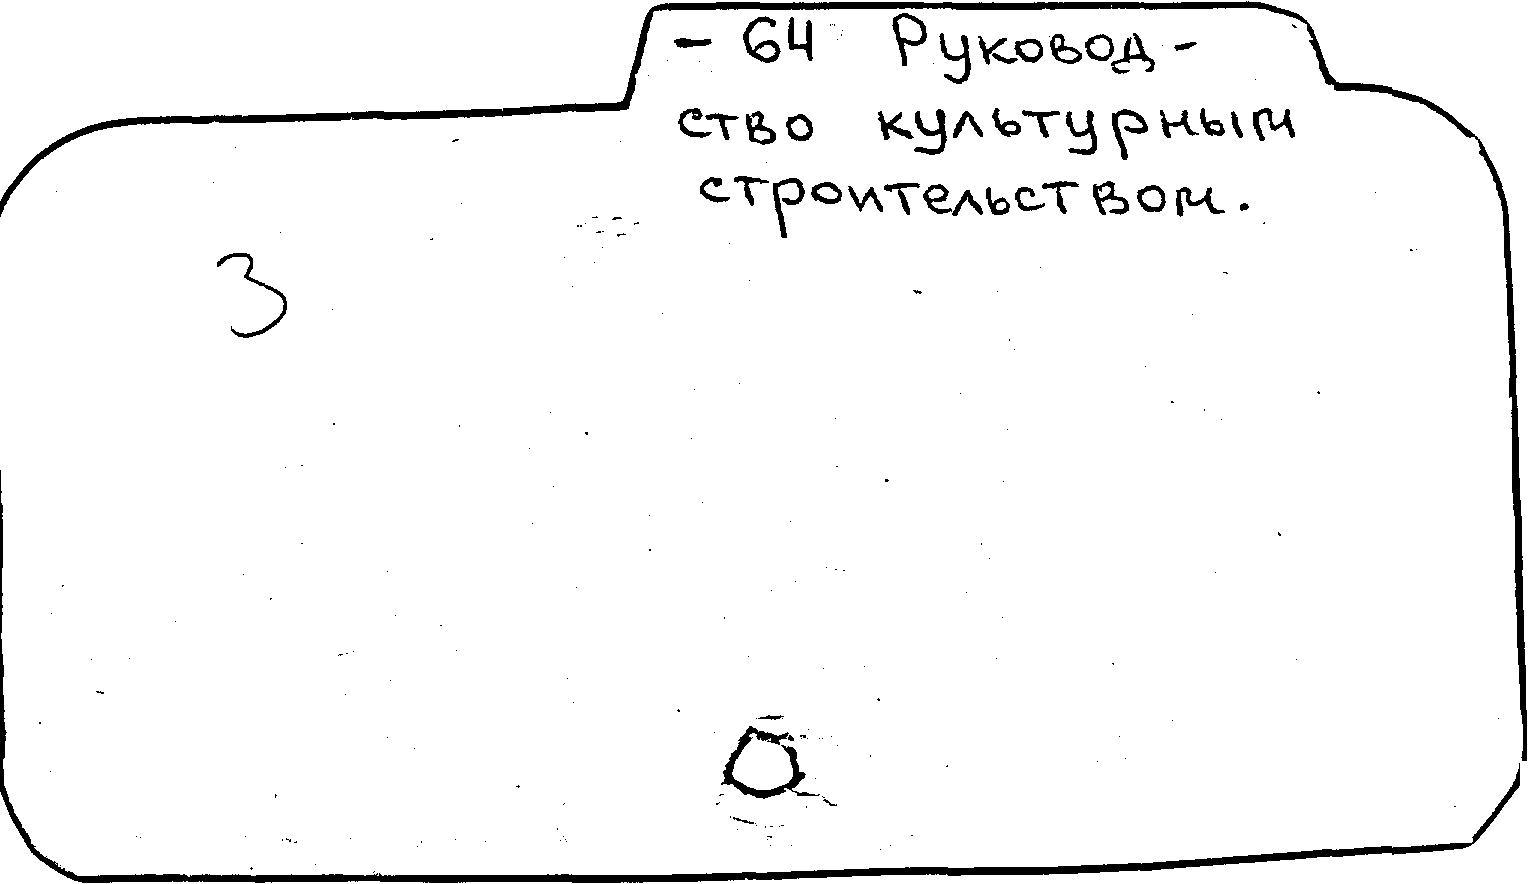 - 64 Руковод-
ство культурным
строительством.
3